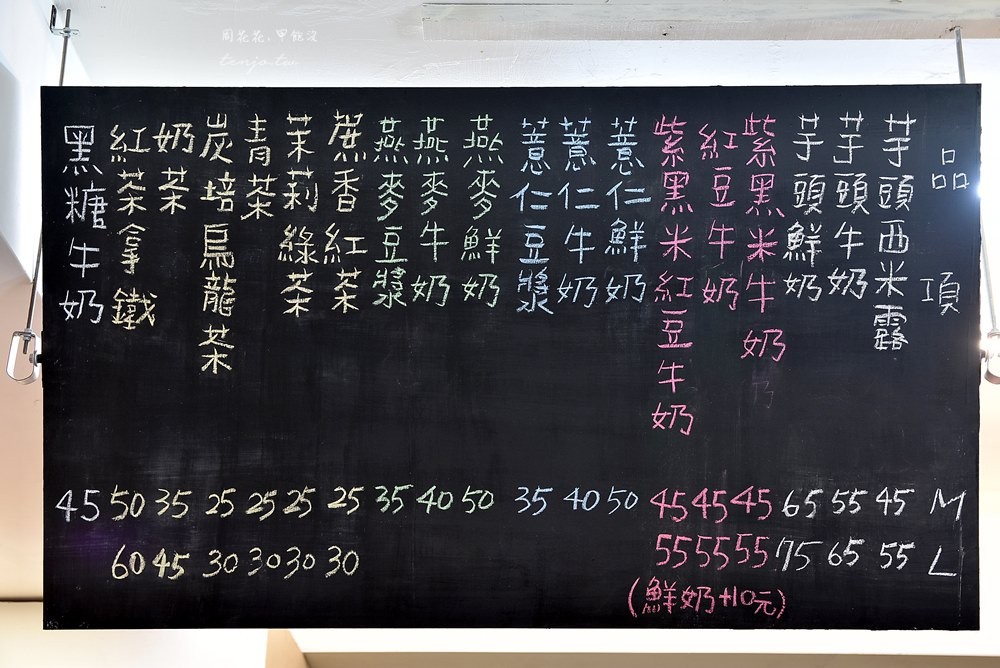 周花花，甲飽沒
tenjo.tw
品項 M L
芋頭西米露 45 55
芋頭牛奶 55 65
芋頭鮮奶 65 75
紫黑米牛奶 45 55
紅豆牛奶 45 55
紫黑米紅豆牛奶 45 55
(鮮奶+10元)
薏仁鮮奶 50
薏仁牛奶 40
薏仁豆漿 35
燕麥鮮奶 50
燕麥牛奶 40
燕麥豆漿 35
蔗香紅茶 25 30
茉莉綠茶 25 30
青茶 25 30
炭培烏龍茶 25 30
奶茶 35 45
紅茶拿鐵 50 60
黑糖牛奶 45